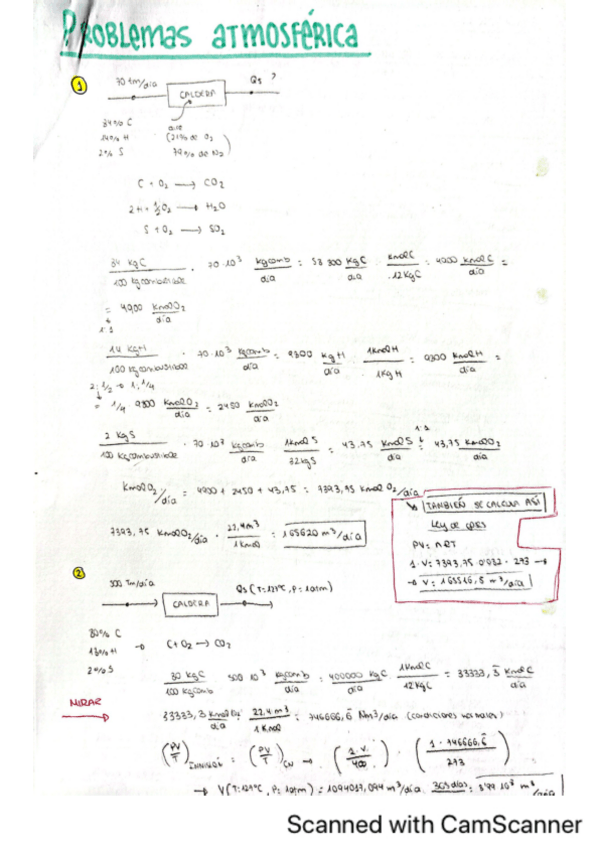 PROBLEMAS ATMOSFÉRICA
1
70 tm/día → CALDERA → Qs ?
84% C
14% H
2% S
aire
(21% de O2
79% de N2)
C + O2 → CO2
2H + 1/2 O2 → H2O
S + O2 → SO2
84 KgC / 100 Kg combustible · 70·10³ Kgcomb/día = 58 800 KgC/día · KmolC / 12KgC = 4900 KmolC/día =
= 4900 KmolO2/día
1:1
14 KgH / 100 Kg combustible · 70·10³ Kgcomb/día = 9800 KgH/día · 1KmolH / 1KgH = 9800 KmolH/día =
2:1/2 → 1:1/4
= 1/4 9800 KmolO2/día = 2450 KmolO2/día
2 KgS / 100 Kg combustible · 70·10³ Kgcomb/día 1KmolS / 32KgS = 43,75 KmolS/día = 43,75 KmolO2/día
1:1
KmolO2/día = 4900 + 2450 + 43,75 = 7393,75 Kmol O2/día
7393,75 KmolO2/día · 22,4m³ / 1Kmol = 165620 m³/día
TAMBIÉN SE CALCULA ASÍ
Ley de gases
PV = nRT
1·V = 7393,75·0'082·273 →
→ V = 165516,5 m³/día
2
500 Tm/día → CALDERA → Qs (T=127ºC, P=1atm)
80% C
18% H
2% S
→ C + O2 → CO2
80 KgC / 100 Kgcomb 500·10³ Kgcomb/día = 400000 KgC/día 1KmolC / 12KgC = 33333,3 KmolC/día
MIRAR
33333,3 22,4m³ / 1Kmol = 746666,6 Nm³/día (condiciones normales)
(PV/T) = (PV/T)CN → (1·V/400) · (1·746666,6 / 273)
→ V (T=127ºC, P=1atm) = 1094017,094 m³/día 365 días = 3'99 10⁸ m³/año
Scanned with CamScanner